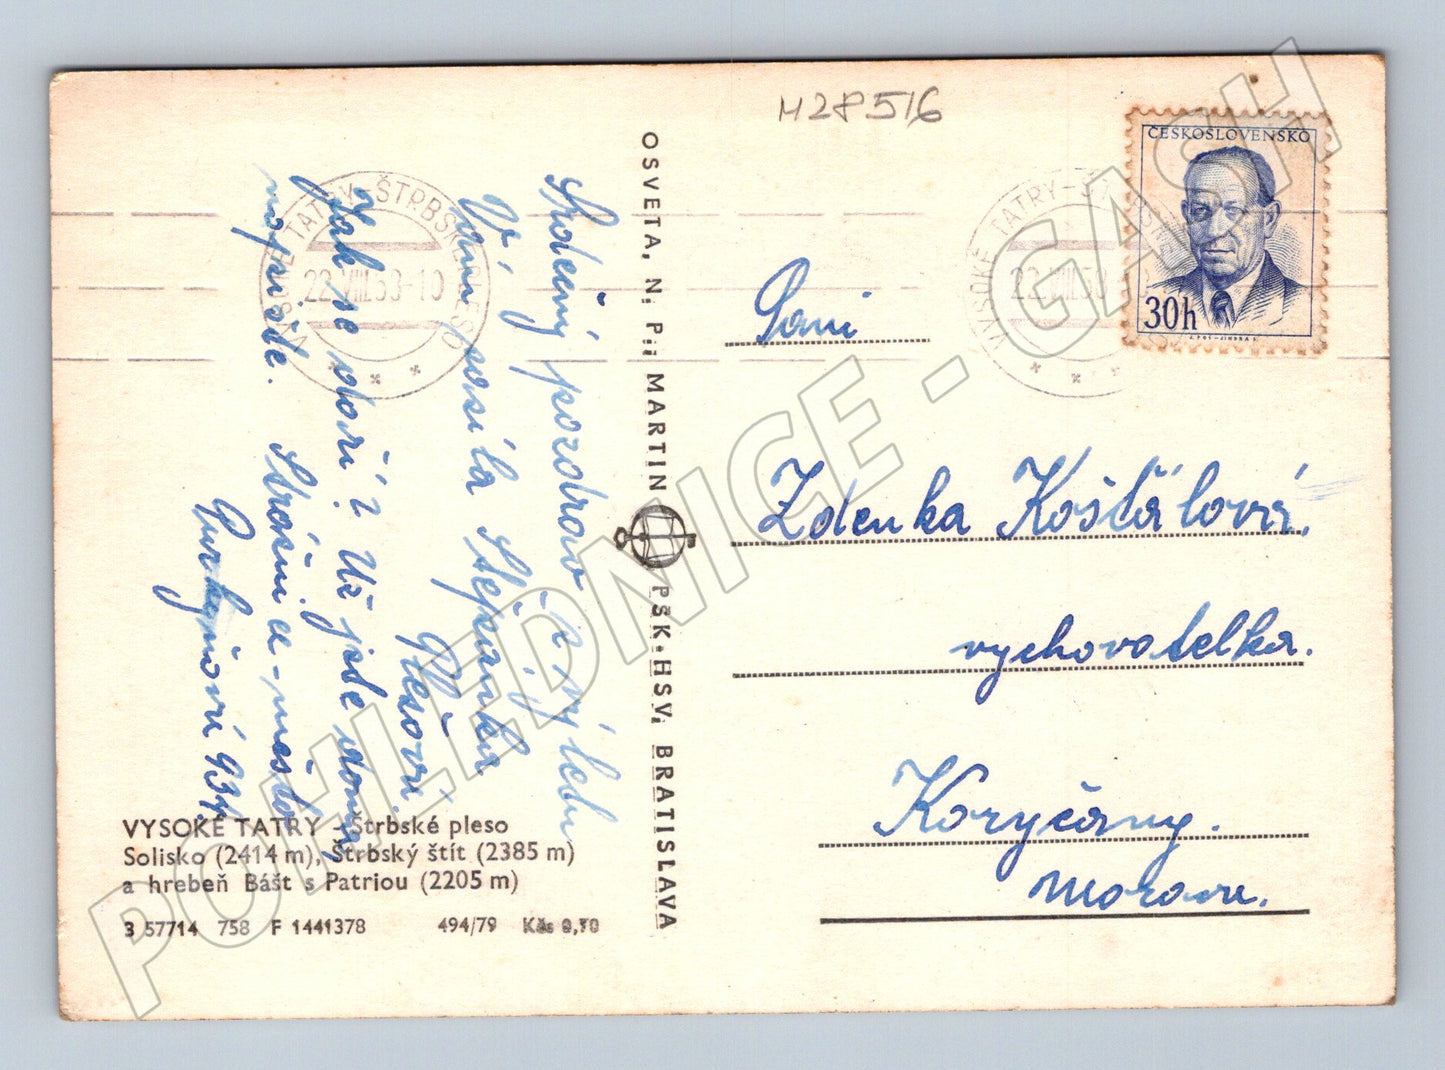 H28516
ČESKOSLOVENSKO
30h
VYSOKÉ TATRY-ŠTRBSKÉ PLESO
22.VIII.58-10
VYSOKÉ TATRY-
22.VIII.58
Srdečný pozdrav
Vám posílá Štěpánka
Plesovi.
Jak se daří? Už jste doma
napište.
Purkyňovi 934.
OSVETA, N. P., MARTIN
PSK-HSV, BRATISLAVA
Paní
Zdenka Košťálová.
vychovatelka.
Koryčany.
Morava.
VYSOKÉ TATRY - Štrbské pleso
Solisko (2414 m), Štrbský štít (2385 m)
a hrebeň Bášt s Patriou (2205 m)
3 57714 758 F 1441378 494/79 Kčs 0,70
POHLEDNICE - GASH